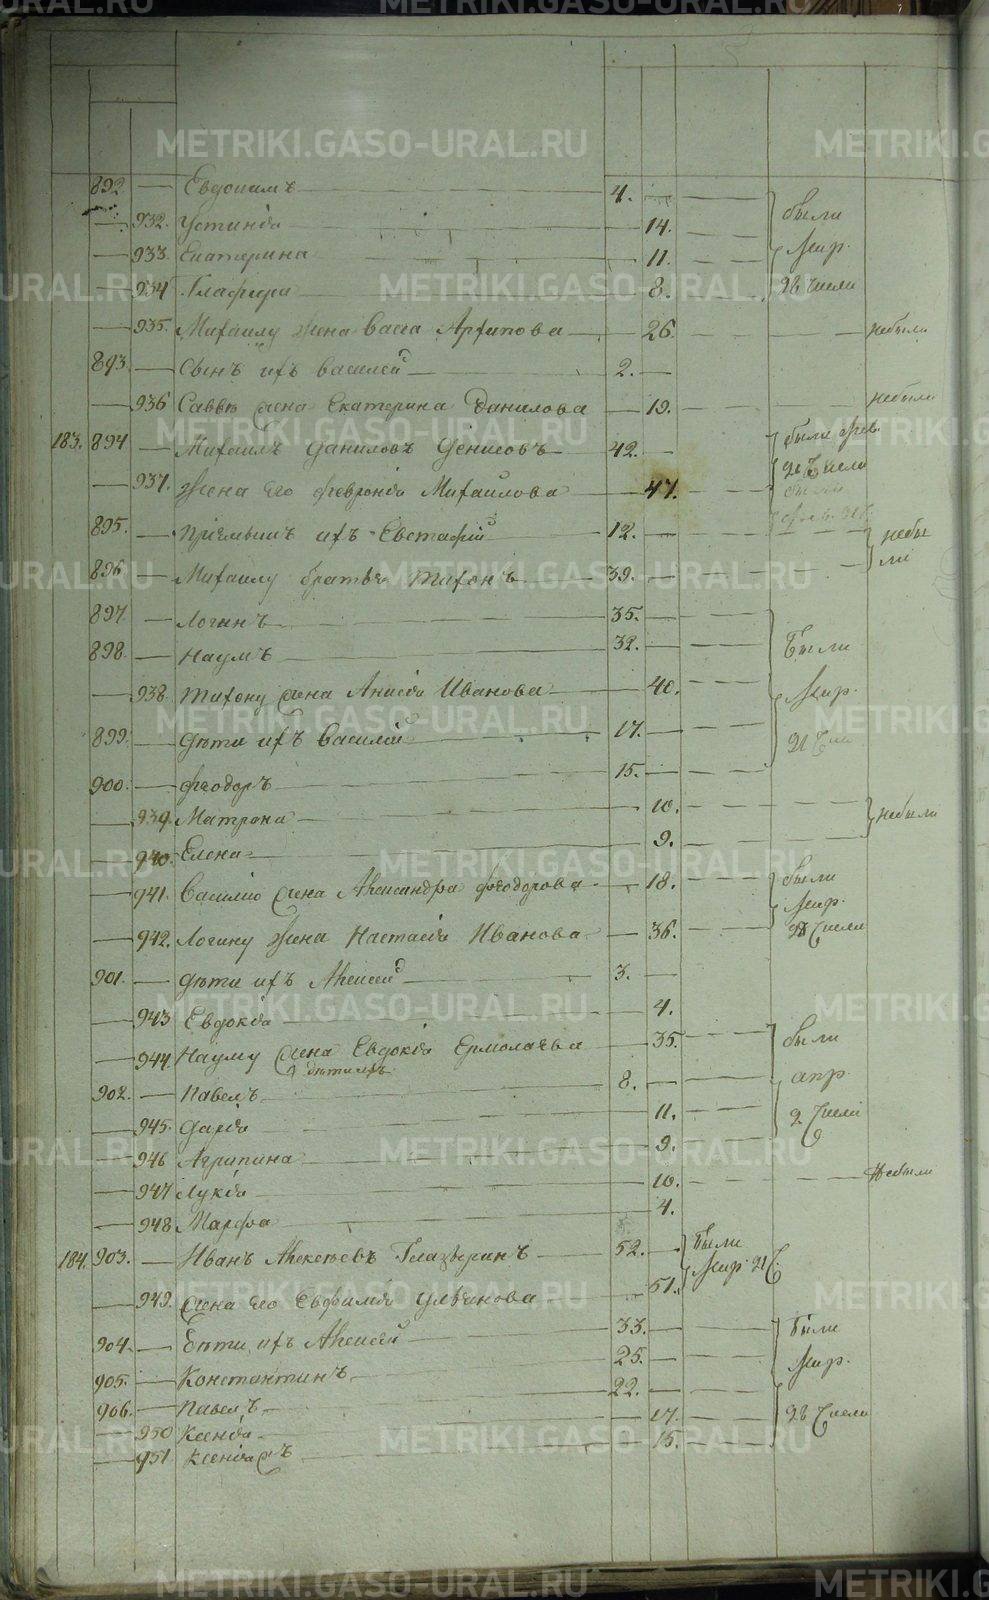 892. — Евдокимъ — 4. — были
— 932. Устинiя — 14.
— 933. Екатерина — 11. Мар.
— 934 Глафира — 8. 28 числа
— 935. Михаилу жена Васса Архипова — 26. — небыли
893. — Сынъ ихъ Василей — 2. —
— 936 Саввы жена Екатерина Данилова — 19. — небыли
183. 894 — Михаилъ Даниловъ Денисовъ — 42. — были
— 937. Жена его Феврониiя Михаилова — 47. 21 числа
895. — Прiемышъ ихъ Евстафiй — 12. — небы
896 — Михаилу братья Тихонъ — 39. — ли
897 — Логинъ — 35. —
898. — Наумъ — 32. — Были
— 938. Тихону жена Анисiя Иванова — 40. Мар.
899. — Дѣти ихъ Василiй — 17. — 21
900. — Феодоръ — 15. —
— 939. Матрона — 10. — небыли
— 940. Елена — 9.
— 941. Василию жена Александра Феодорова — 18. были
Мар.
— 942. Логину жена Настасiя Иванова — 36. 28 числа
901. — Дѣти ихъ Алексей — 3. —
— 943 Евдокiя — 4.
— 944 Науму жена Евдокiя Ермолаева — 35. были
дѣти ихъ
902. — Павелъ — 8. — апр.
— 945. Дарiя — 11. 2 числа
— 946 Агрипина — 9.
— 947 Лукiя — 10. — Небыли
— 948 Марфа — 4.
184. 903. — Иванъ Алексѣевъ Глазыринъ — 52. — Были
Мар. 21 Ч.
— 949. Жена его Евфимiя Улянова — 51.
904. — Дѣти ихъ Алексей — 33. — Были
905. — Константинъ — 25. — Мар.
906. — Павелъ — 22. —
— 950 Ксенiя — 17. 28 числа
— 951 Ксенiя — 15.
METRIKI.GASO-URAL.RU